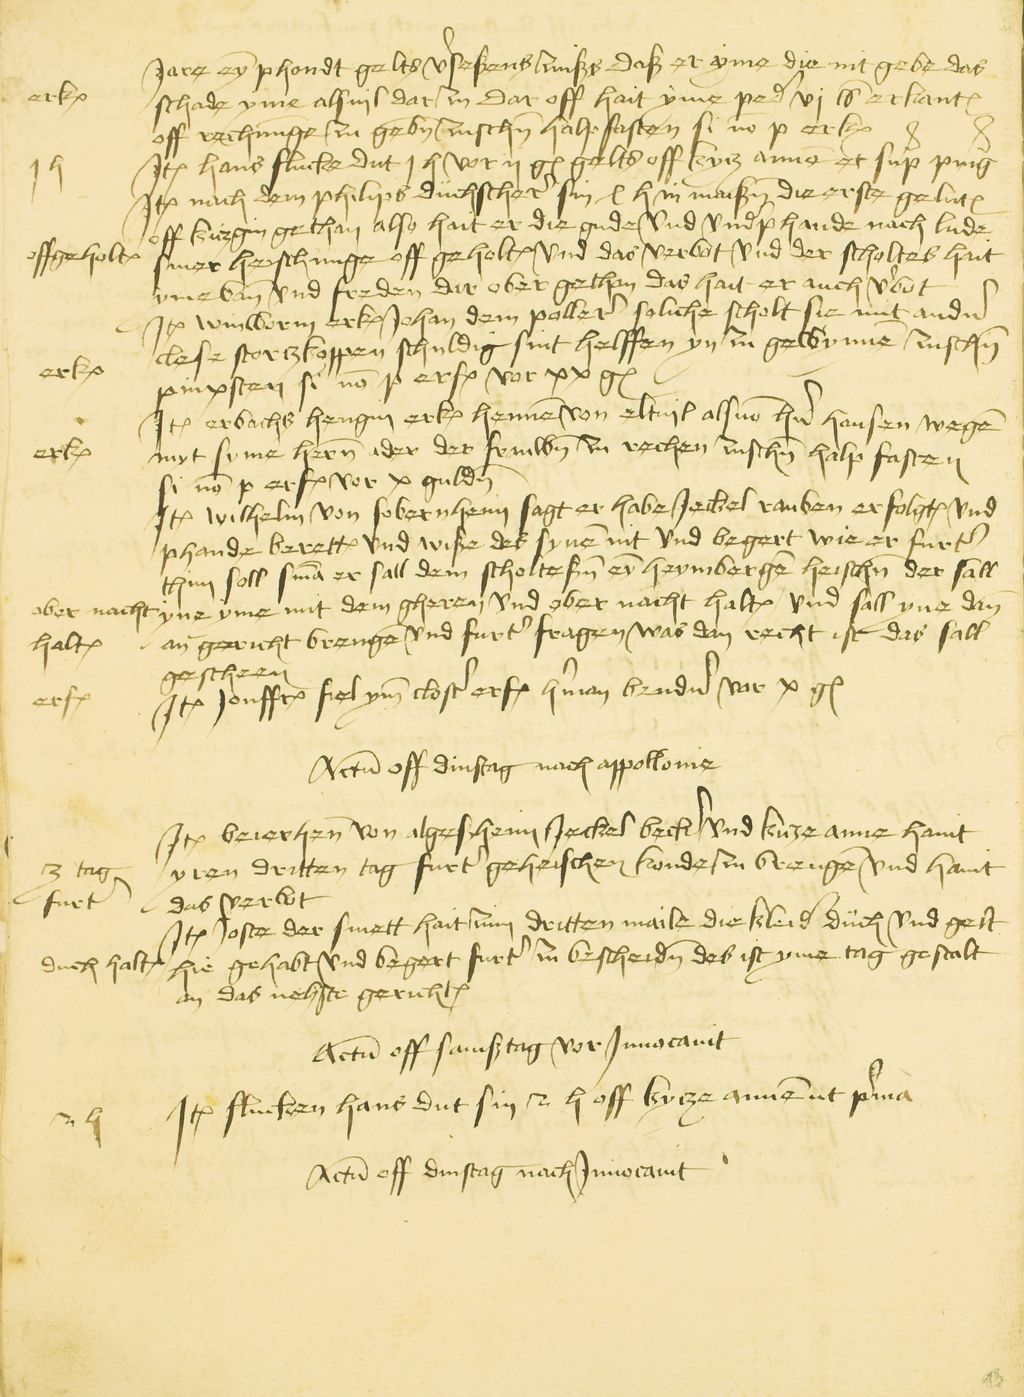 Jare ey phondt gelts v'seßens zinßs daß er yme die nit gebe das
erk
schade yme alsuil dar zu dar off hait yme peder vj ß erkant
off rechnunge zu gebn zuschn halpfasten si no p erk
j h
Jt hans flucke dut j h vor ij g gelts off kytz anne et sup pnig
Jt nach dem philips duchscherer sin h in maißn die erste gelute
off kuzgin gethan also hait er die gude vnd vndphande nach lude
offgeholt
siner heischunge off geholt vnd das verbot vnd der scholtes hait
yme ban vnd freden dar ober gethan das hait er auch v'bot
Jt winworm erk Johan dem poller soliche scholt sie mit ander
clese stortzkoppen schuldig sint helffen yn zu gewynne zuschn
erk
pinxsten si no p erf vor xx g
Jt erbachs hengin erk henne von eltuil alsuo her hansen wegen
erk
myt syme hern ader der frauwn zu rechen zuschn halpfasten
si no p erf vor x guldn
Jt wilhelm von sobernheim sagt er habe Jeckel rauben erfolgt vnd
phande berett vnd wiße des syne nit vnd begert wie er furter
thun soll sma er sall dem scholteßn ey heymbergen heischn der sall
ober nacht yne yme mit dem gheren vnd ober nacht halt vnd sall yne dan
halt
an gericht brengen vnd furter fragen was dan recht ist das sall
gescheen
erf
Jt Jonffr fiel ym closter erf herman bender vor x g
Actu off dinstag nach appollonie
Jt beierhen von algeßheim Jeckel becker vnd kuze anne haint
3 tag
yren dritten tag furter geheischen konde zu brengen vnd haint
furter
das verbot
Jt Joste der smett hait zum dritten maile die kleider duch vnd gelt
duch halt
hie gehabt vnd begert furter zu bescheidn des ist yme tag gestalt
an das nehste gericht
Actu off samßtag vor Jnuocauit
2 h
Jt flucken hans dut sin 2 h off kytze annen ut prima
Actu off dinstag nach Jnuocauit